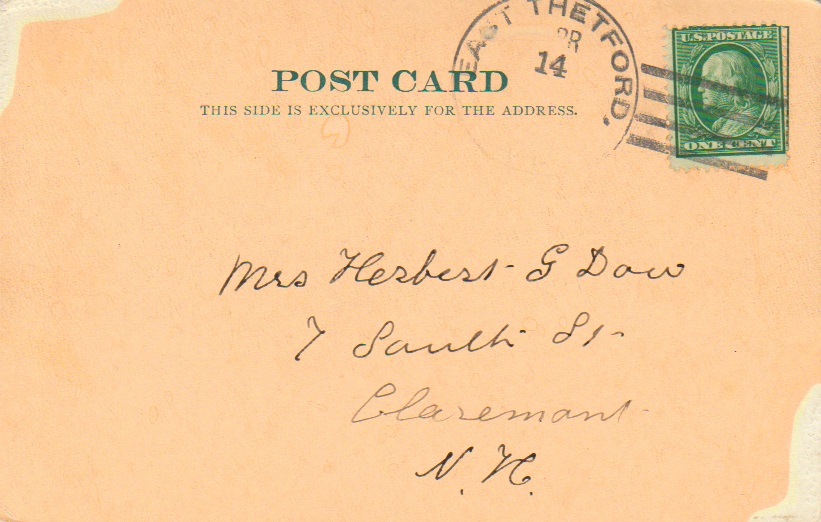 EAST THETFORD.
PR
14
U.S. POSTAGE
ONE CENT
POST CARD
THIS SIDE IS EXCLUSIVELY FOR THE ADDRESS.
Mrs Herbert G Dow
7 South St
Claremont
N. H.